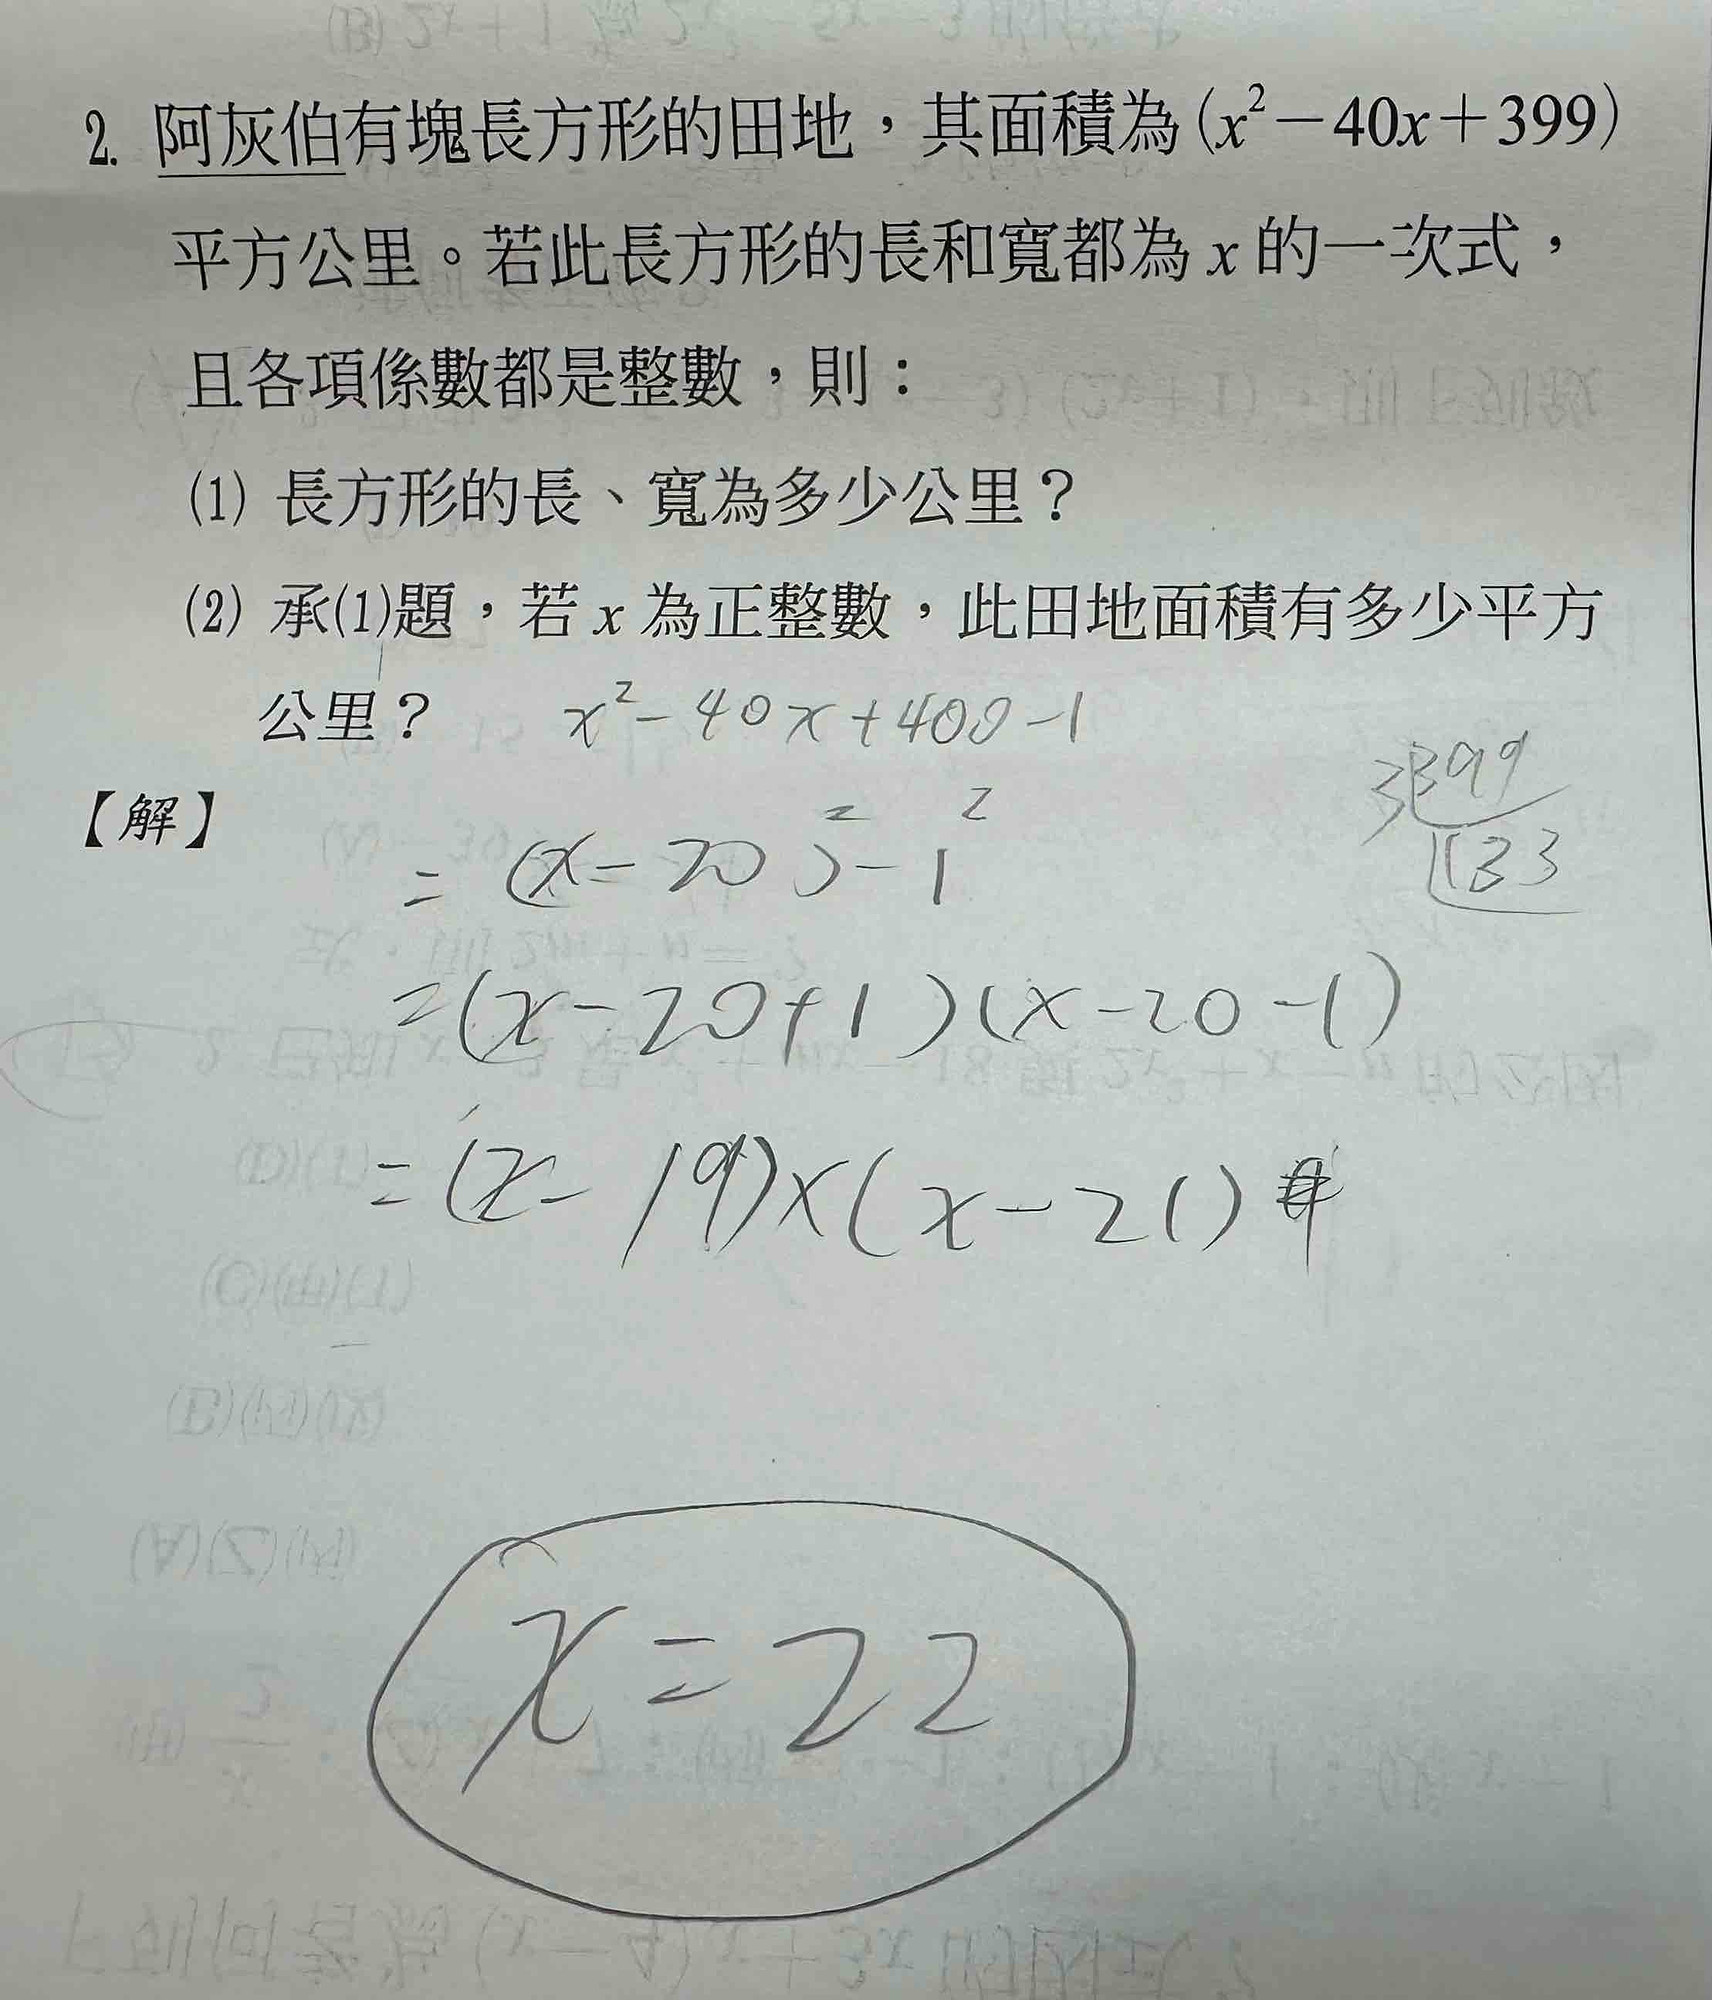 2. 阿灰伯有塊長方形的田地，其面積為(x²－40x＋399)
平方公里。若此長方形的長和寬都為x的一次式，
且各項係數都是整數，則：
(1) 長方形的長、寬為多少公里？
(2) 承(1)題，若x為正整數，此田地面積有多少平方
公里？
x²-40x+400-1
【解】
=(x-20)²-1²
=(x-20+1)(x-20-1)
=(x-19)×(x-21)#
399
133
x=22